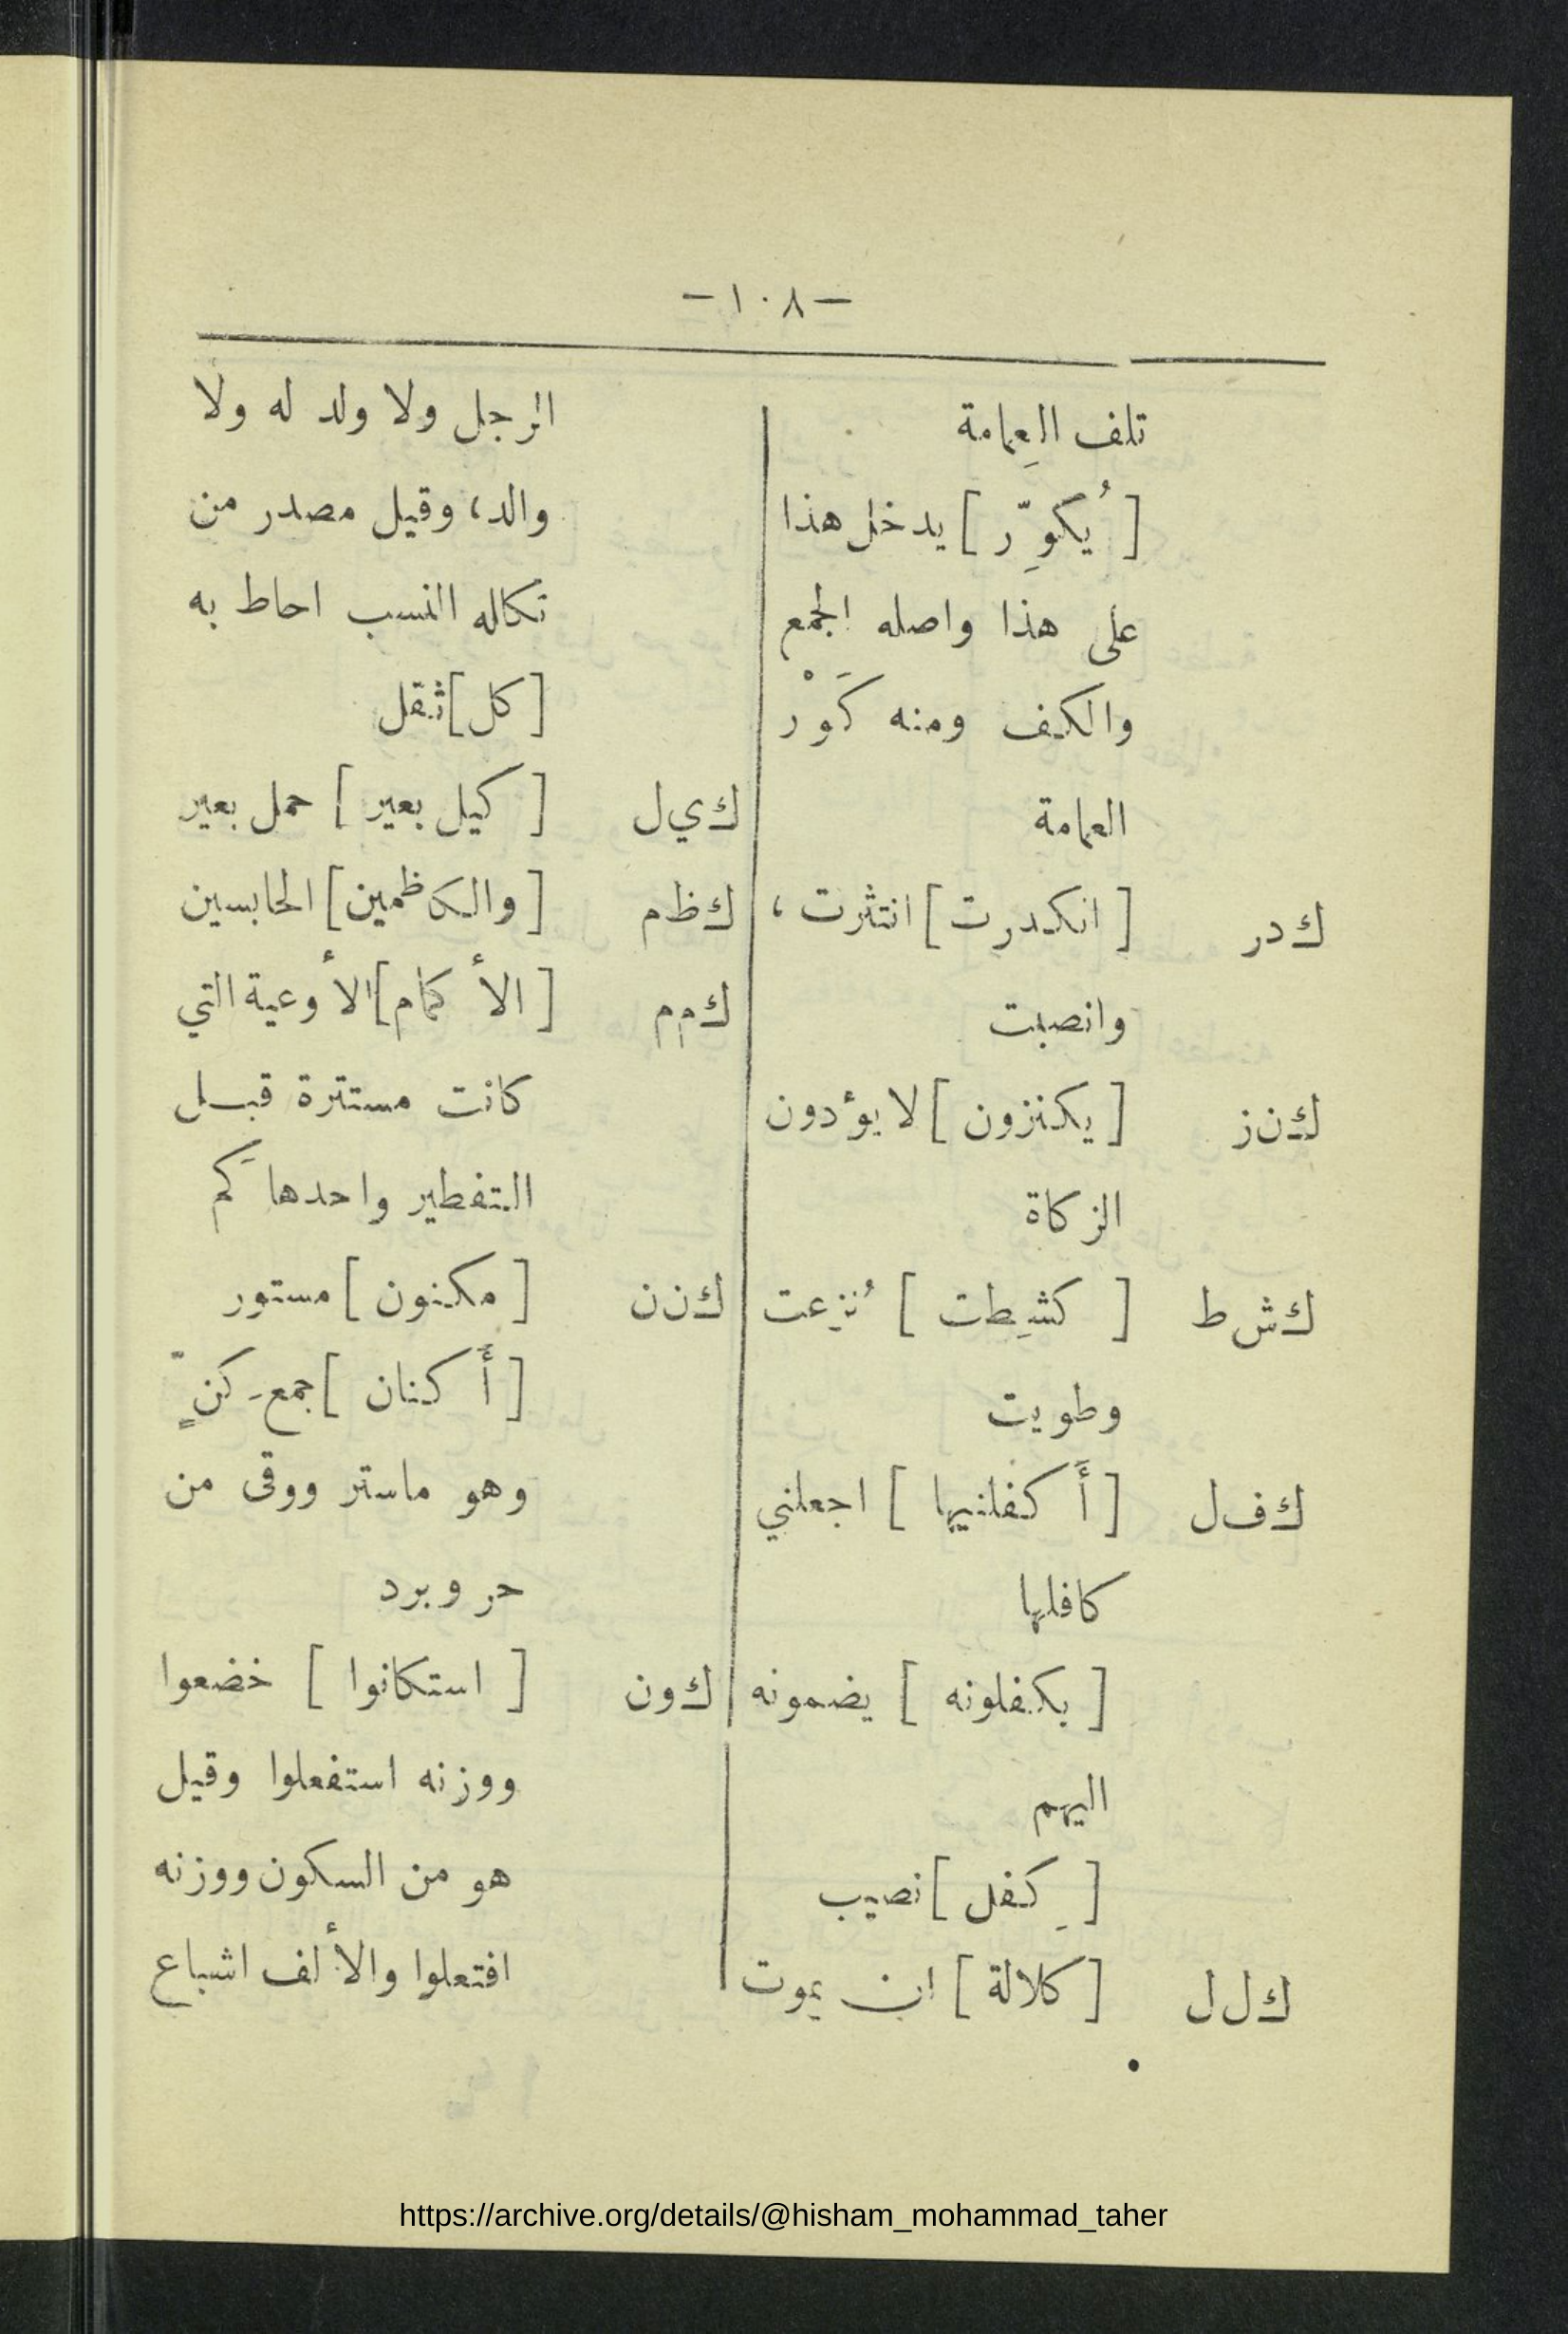 -١٠٨-
تلف العِمامة
[ يُكوِّر ] يدخل هذا
على هذا واصله الجمع
والكف ومنه كَوْر
العمامة
ك در [ انكدرت ] انتثرت ،
وانصبت
ك ن ز [ يكنزون ] لا يؤدون
الزكاة
ك ش ط [ كشِطت ] نُزِعت
وطويت
ك ف ل [ أَكفلنيها ] اجعلني
كافلها
[ يكفلونه ] يضمونه
اليهم
[ كِفل ] نصيب
ك ل ل [ كلالة ] ان يموت
الرجل ولا ولد له ولا
والد، وقيل مصدر من
تكلله النسب احاط به
[ كل ] ثقل
ك ي ل [ كيل بعير ] حمل بعير
ك ظ م [ والكاظمين ] الحابسين
ك م م [ الأكمام ] الأوعية التي
كانت مستترة قبل
التفطير واحدها كَم
ك ن ن [ مكنون ] مستور
[ أَكنان ] جمع كنٍّ
وهو ماستر ووقى من
حر وبرد
ك ون [ استكانوا ] خضعوا
ووزنه استفعلوا وقيل
هو من السكون ووزنه
افتعلوا والألف اشباع
https://archive.org/details/@hisham_mohammad_taher